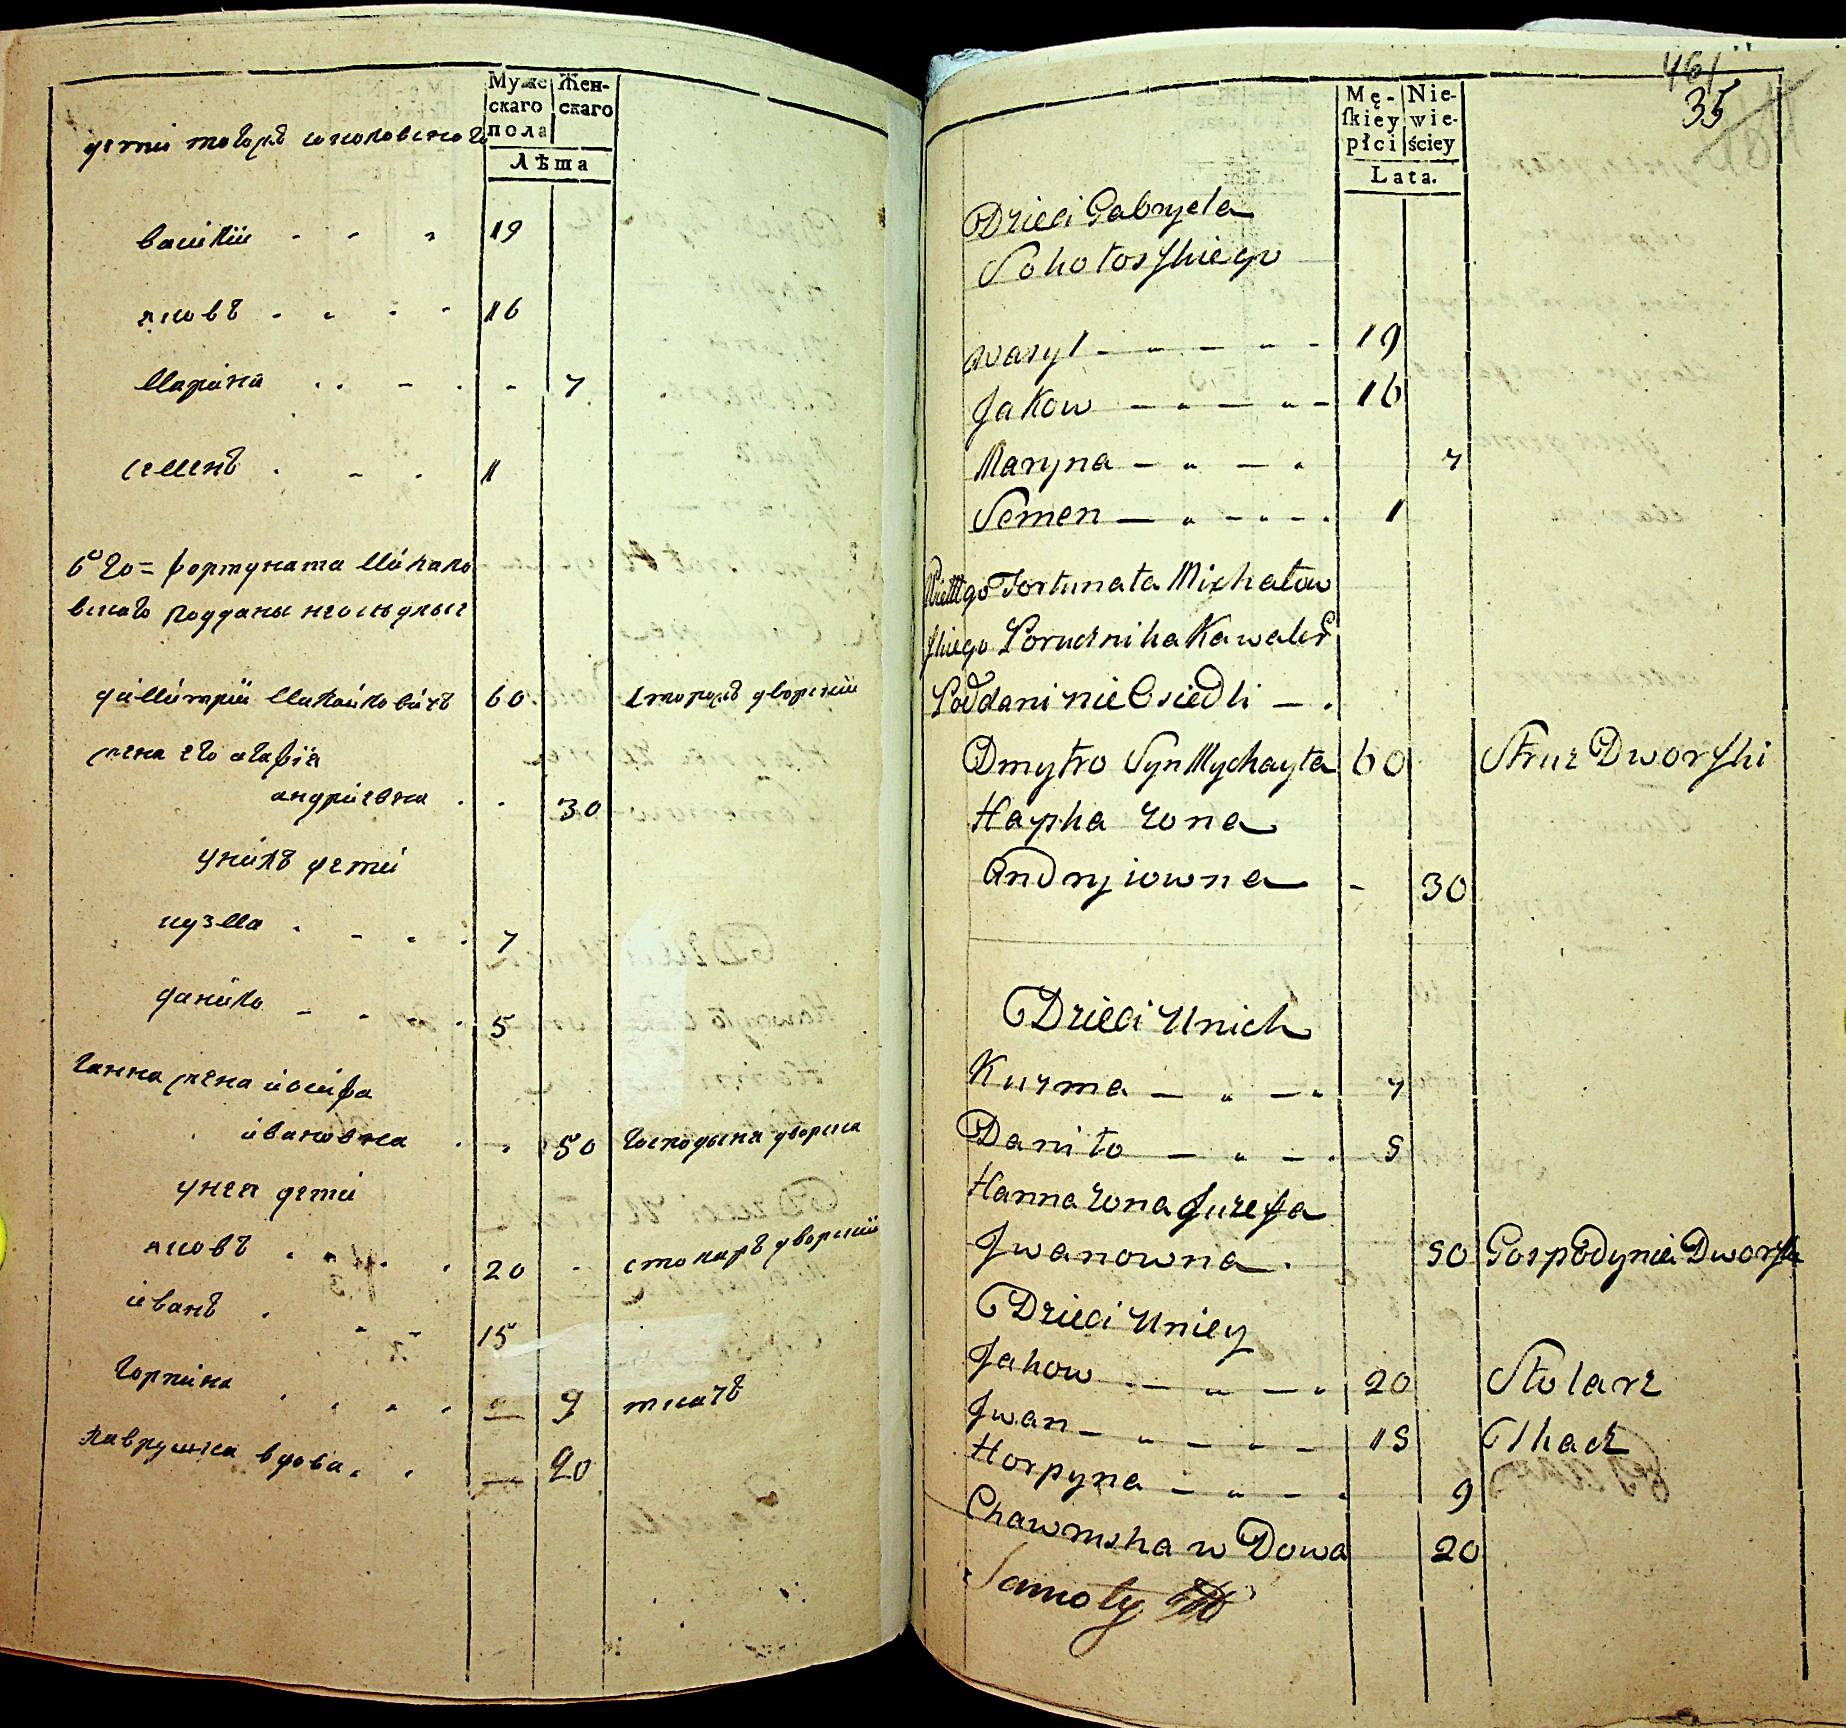 Муже Жен-
скаго скаго
пола
Лѣта
дети тогожъ соколовскаго
василий - - - 19
яковъ - - - - 16
Марина - - - - - 7
семенъ - - - 1
фортуната Михало
вскаго подданы неоседлые
димитрий Михайловичъ 60 сторожъ дворский
жена его агафия
андриевна - - 30
унихъ дети
кузма - - - - 7
данило - - - 5
ганна жена иосифа
ивановна - - 50 господыня дворска
унея дети
яковъ - - - - 20 - столяръ дворский
иванъ - - - 15
горпина - - - - - 9 ткачъ
вдова - - 20
461
35
Mę- Nie-
skiey wie-
płci ściey
Lata.
Dzieci Gabryela
Sokołoskiego
Wasyl - - - - - 19
Jakow - - - - - 16
Maryna - - - - 7
Semen - - - - - 1
Fortunata Michałow
skiego Porucznika Kawaler
Poddani nie Osiedli - -
Dmytro Syn Mychayła 60 Struz Dworski
Hapka zona
Andryiowna - 30
Dzieci Unich
Kuzma - - - - 7
Daniło - - - - 5
Hanna zona Juzefa
Jwanowna - 50 Gospodynia Dworska
Dzieci Uniey
Jakow - - - - 20 Stolarz
Jwan - - - - - 15 Tkacz
Horpyna - - - - 9
wDowa 20